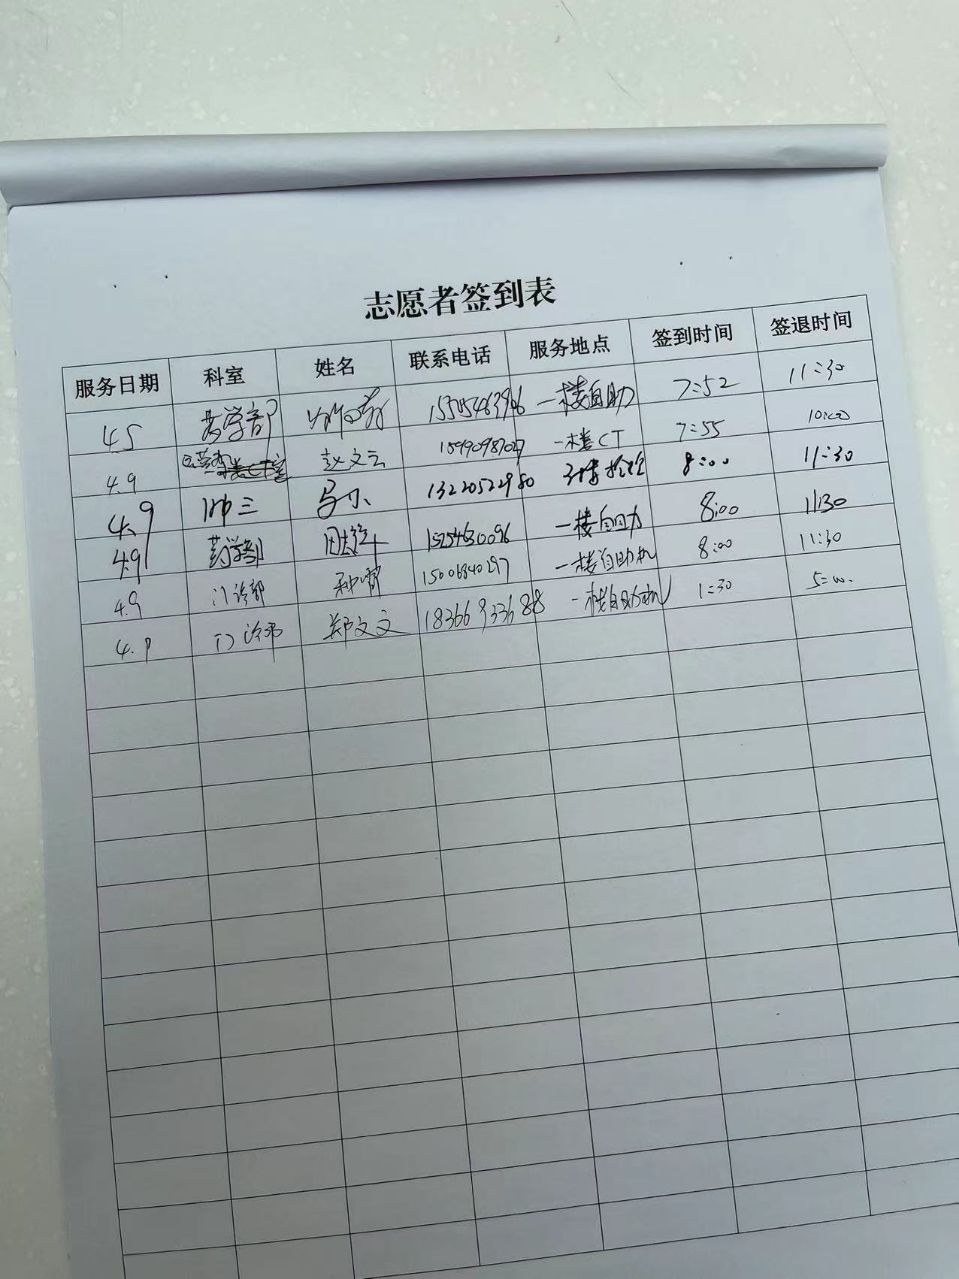 志愿者签到表
服务日期 科室 姓名 联系电话 服务地点 签到时间 签退时间
4.5 药学部 一楼自助 7:52 11:30
4.9 赵文云 15990987027 一楼CT 7:55 10:00
4.9 肿三 马 13220522980 8:00 11:30
4.9 药学部 15254630096 一楼自助 8:00 11:30
4.9 门诊部 15006840297 一楼自助机 8:00 11:30
4.9 门诊部 郑文文 18366933688 一楼自助机 1:30 5:00.